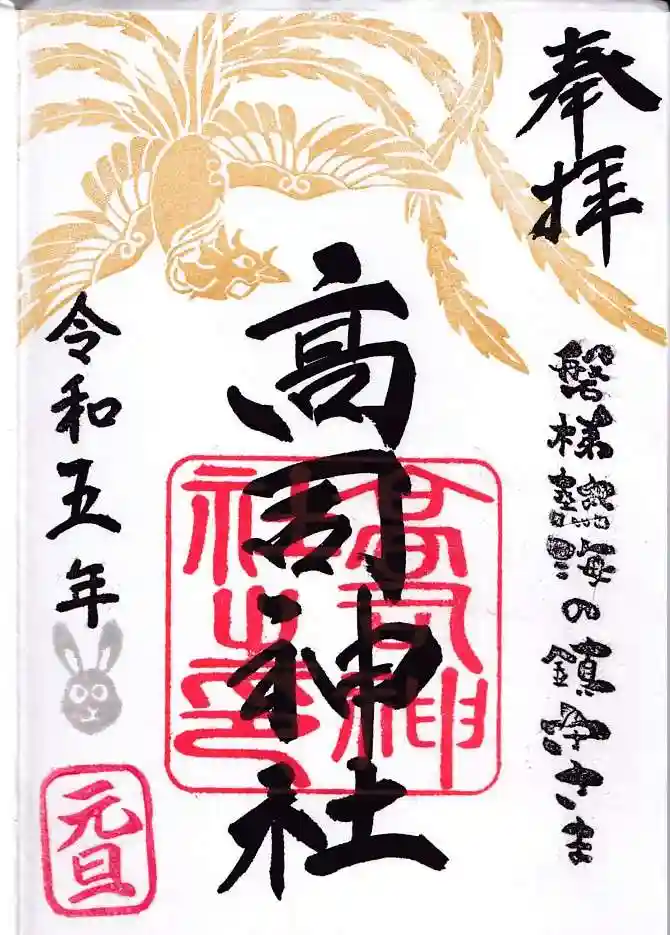 奉拝
磐梯熱海の鎮守さま
高司神社
高司神
社之印
令和五年
元旦